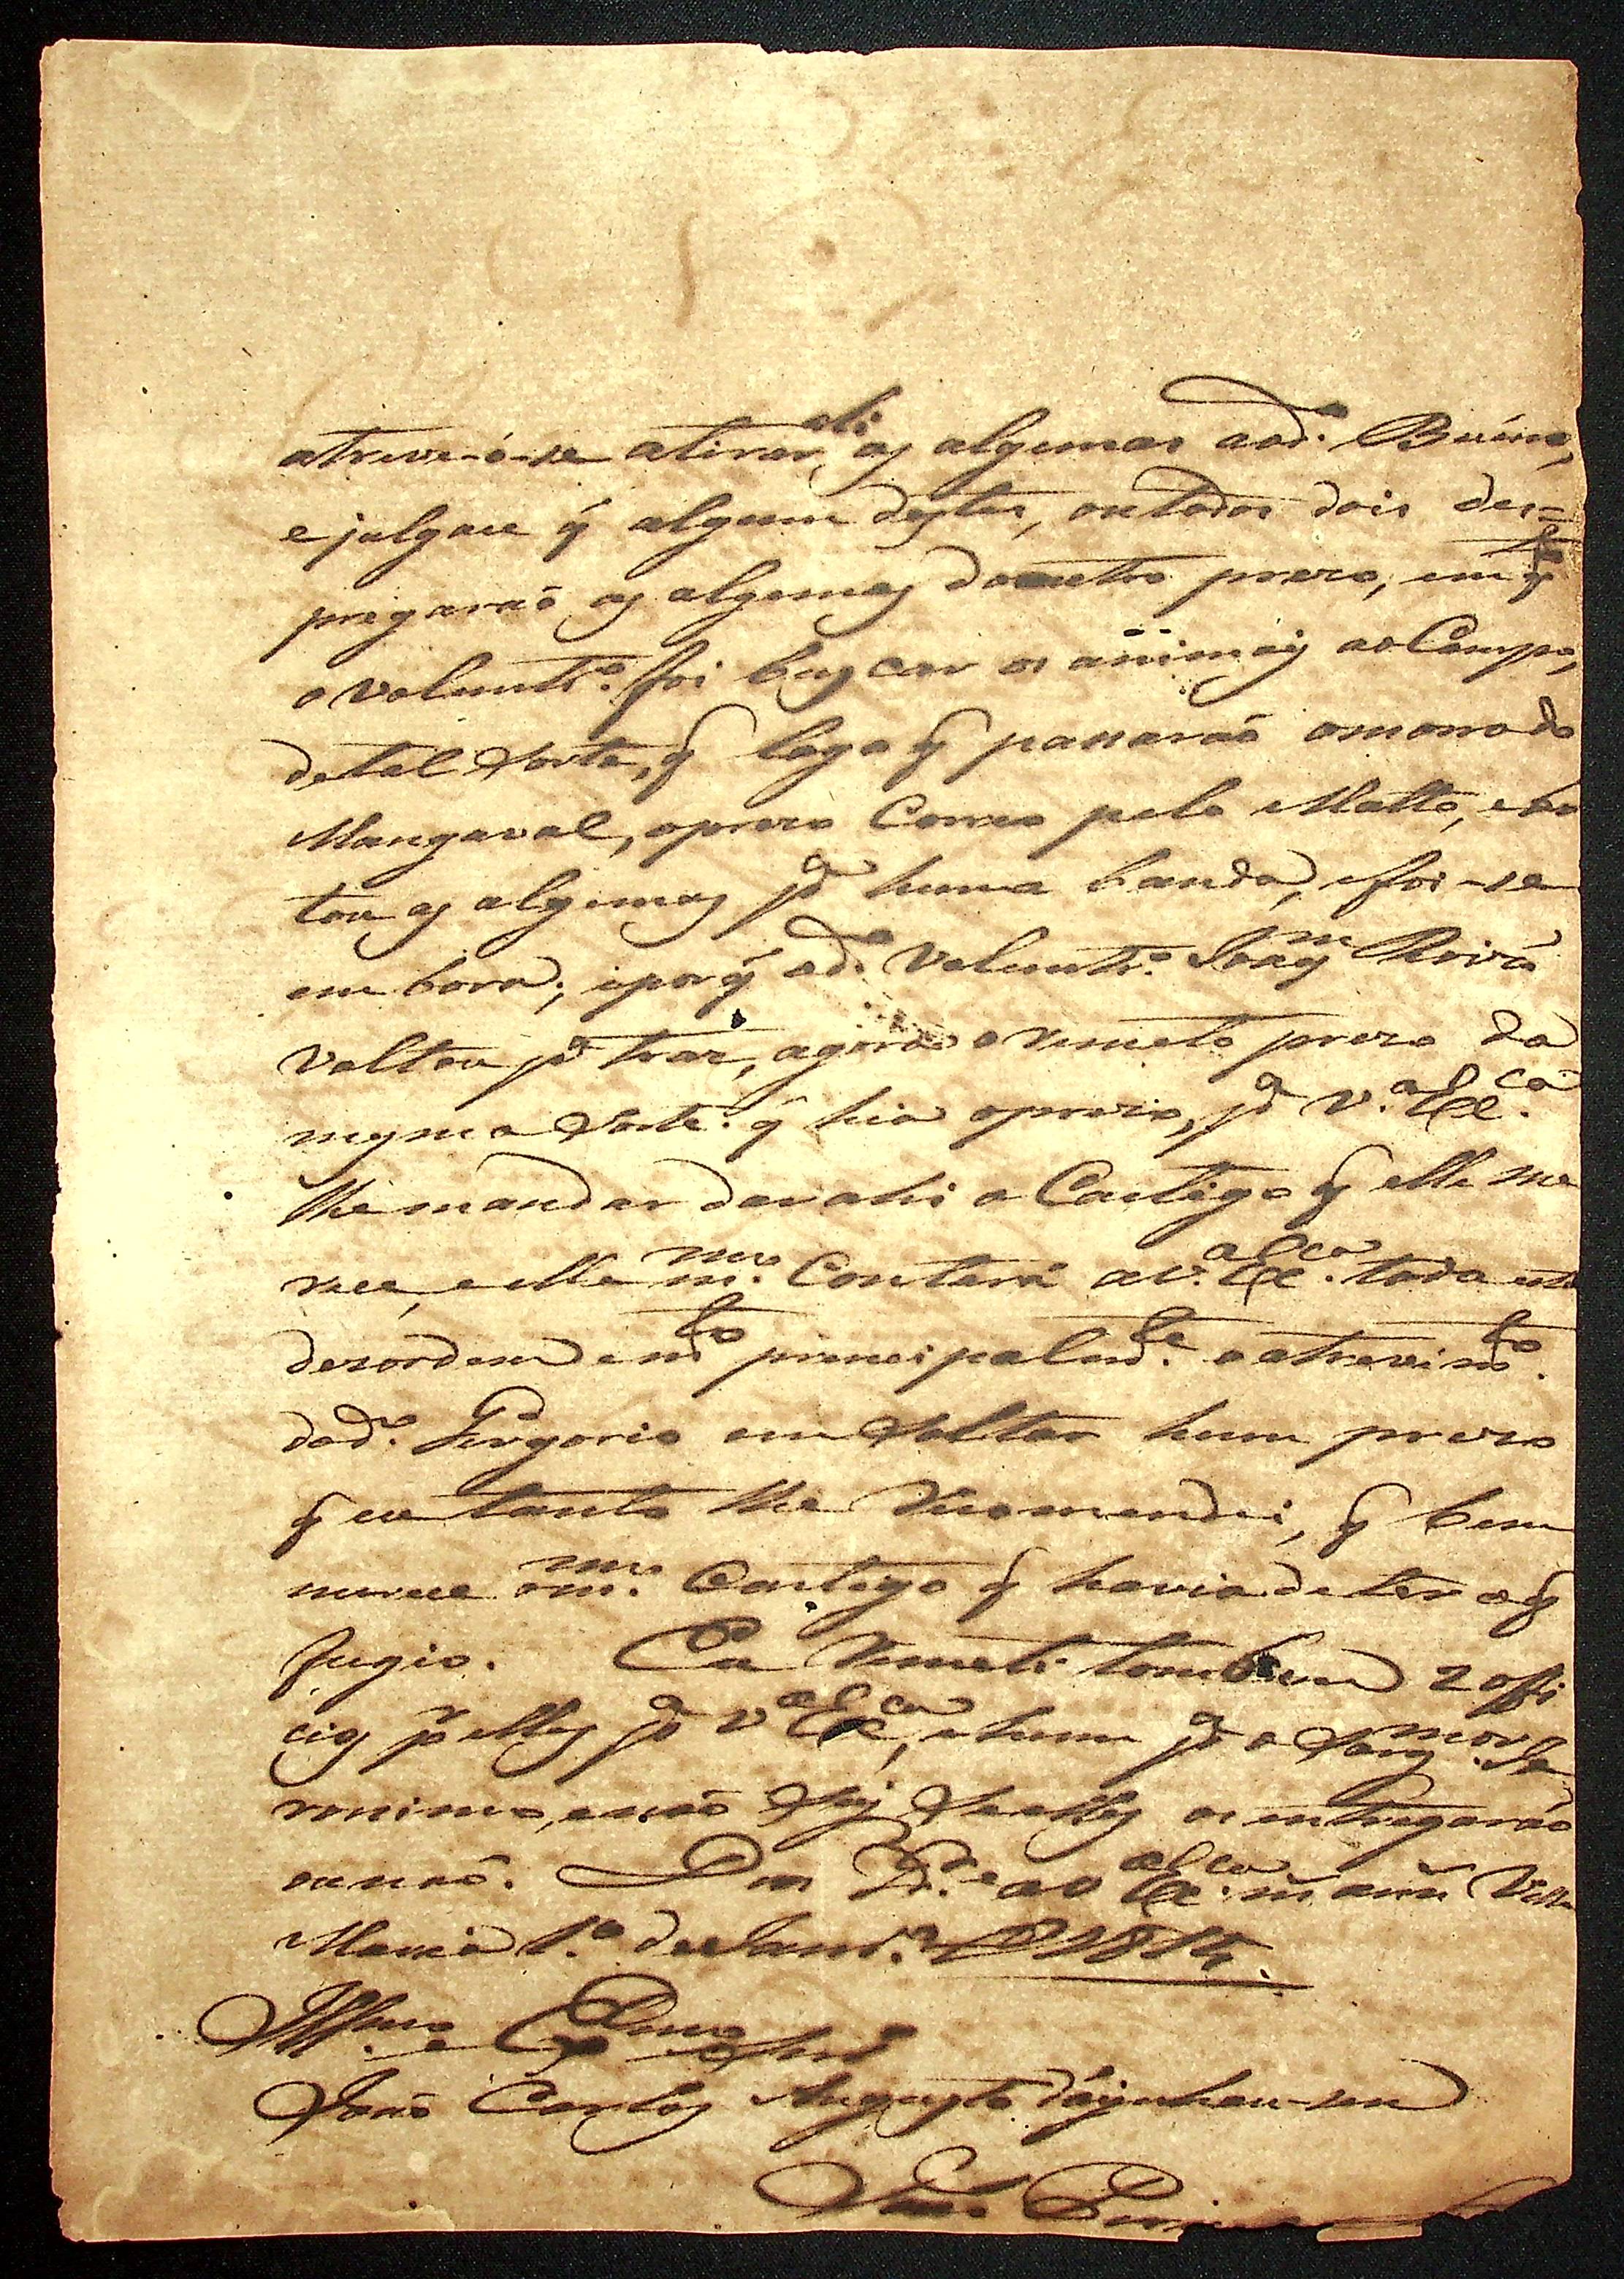 atreveo-se a tirar ali as algemas ao d.º Buéno,
e julgace q̃ algum destes, ou todos dois des=
pregaraõ as algemas do outro prezo, em q.to
o Volunt.º foi buscar os animais ao Campo,
de tal Sorte, q̃ logo q̃ passaraõ o morro do
Mangaval, o prezo Correo pelo Matto, e bo
tou as algemas p.ª huma banda, e foi-se
em bora; e por q̃ o d.º Volunt.º Joaq.m
Voltou p.ª traz, agora o remeto prezo da
mesma Sorte q̃ hia o prezo, p.ª V.ª Ex.cª
lhe mandar dar ahi o Castigo q̃ elle me
rece, e elle m.mo Contará a V.ª Ex.cª toda esta
desordem e m.to principalm.te o atrevim.to
do d.º Gregorio em Soltar hum prezo
q̃ eu tanto lhe recomendei, q̃ bem
merece o m.mo Castigo q̃ havia de ter o q̃
fugio. Eu remeti tambem 2 offi
cios p.r elles p.ª V.ª Ex.cª, e hum p.ª o Sarg.mor Je
ronimo, e naõ Sey Se elles os entregaraõ
ou naõ. Deos g.de a V.ª Ex.cª m. ann. Villa
Maria 1.º de Janr.º de 1815.
Ill.mo e Ex.mo Snr.
Joaõ Carlos Augusto d'Oeynhau-sen